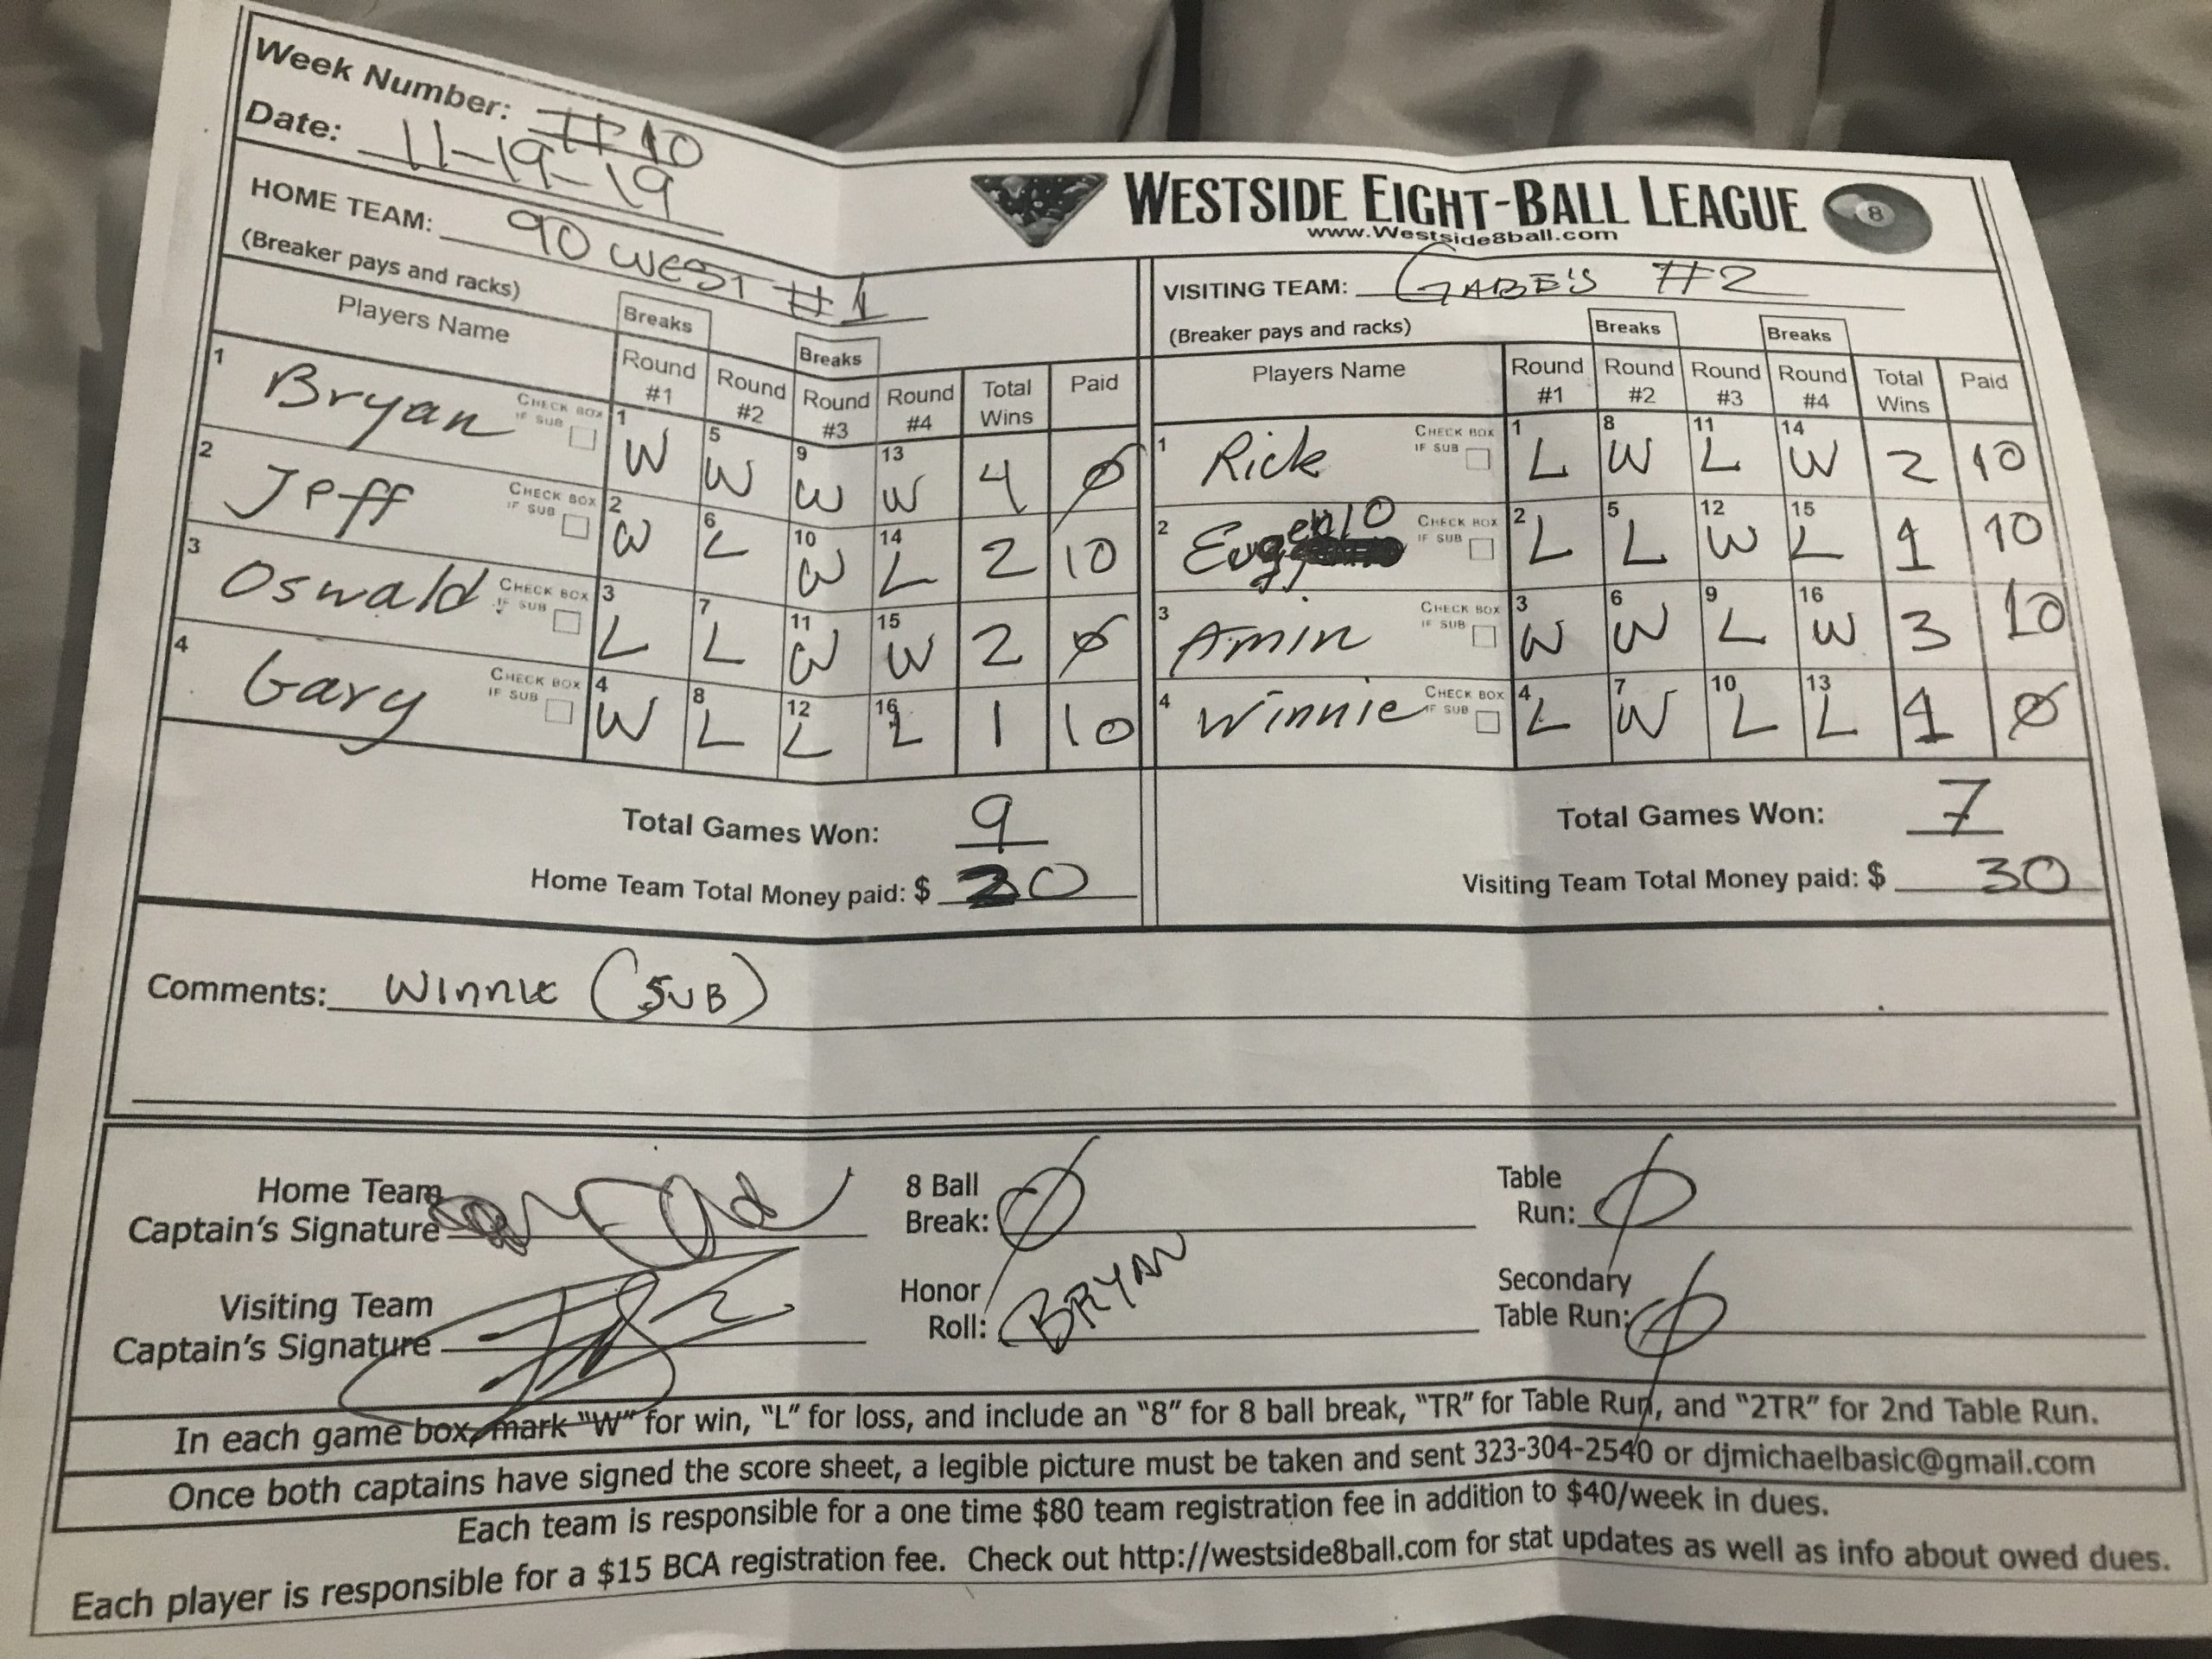 Week Number: #10
Date: 11-19-19
WESTSIDE EIGHT-BALL LEAGUE
8
www.Westside8ball.com
HOME TEAM: 90 WEST #1
(Breaker pays and racks)
Breaks Breaks
Players Name Round #1 Round #2 Round #3 Round #4 Total Wins Paid
1 Bryan CHECK BOX IF SUB 1 W 5 W 9 W 13 W 4 Ø
2 Jeff CHECK BOX IF SUB 2 W 6 L 10 W 14 L 2 10
3 Oswald CHECK BOX IF SUB 3 L 7 L 11 W 15 W 2 Ø
4 Gary CHECK BOX IF SUB 4 W 8 L 12 L 16 L 1 10
Total Games Won: 9
Home Team Total Money paid: $ 20
VISITING TEAM: GABE'S #2
(Breaker pays and racks)
Breaks Breaks
Players Name Round #1 Round #2 Round #3 Round #4 Total Wins Paid
1 Rick CHECK BOX IF SUB 1 L 8 W 11 L 14 W 2 10
2 Eugenio CHECK BOX IF SUB 2 L 5 L 12 W 15 L 1 10
3 Amin CHECK BOX IF SUB 3 W 6 W 9 L 16 W 3 10
4 Winnie CHECK BOX IF SUB 4 L 7 W 10 L 13 L 1 Ø
Total Games Won: 7
Visiting Team Total Money paid: $ 30
Comments: WINNIE (SUB)
Home Team Captain's Signature
8 Ball Break: Ø
Table Run: Ø
Visiting Team Captain's Signature
Honor Roll: BRYAN
Secondary Table Run: Ø
In each game box, mark "W" for win, "L" for loss, and include an "8" for 8 ball break, "TR" for Table Run, and "2TR" for 2nd Table Run.
Once both captains have signed the score sheet, a legible picture must be taken and sent 323-304-2540 or djmichaelbasic@gmail.com
Each team is responsible for a one time $80 team registration fee in addition to $40/week in dues.
Each player is responsible for a $15 BCA registration fee. Check out http://westside8ball.com for stat updates as well as info about owed dues.